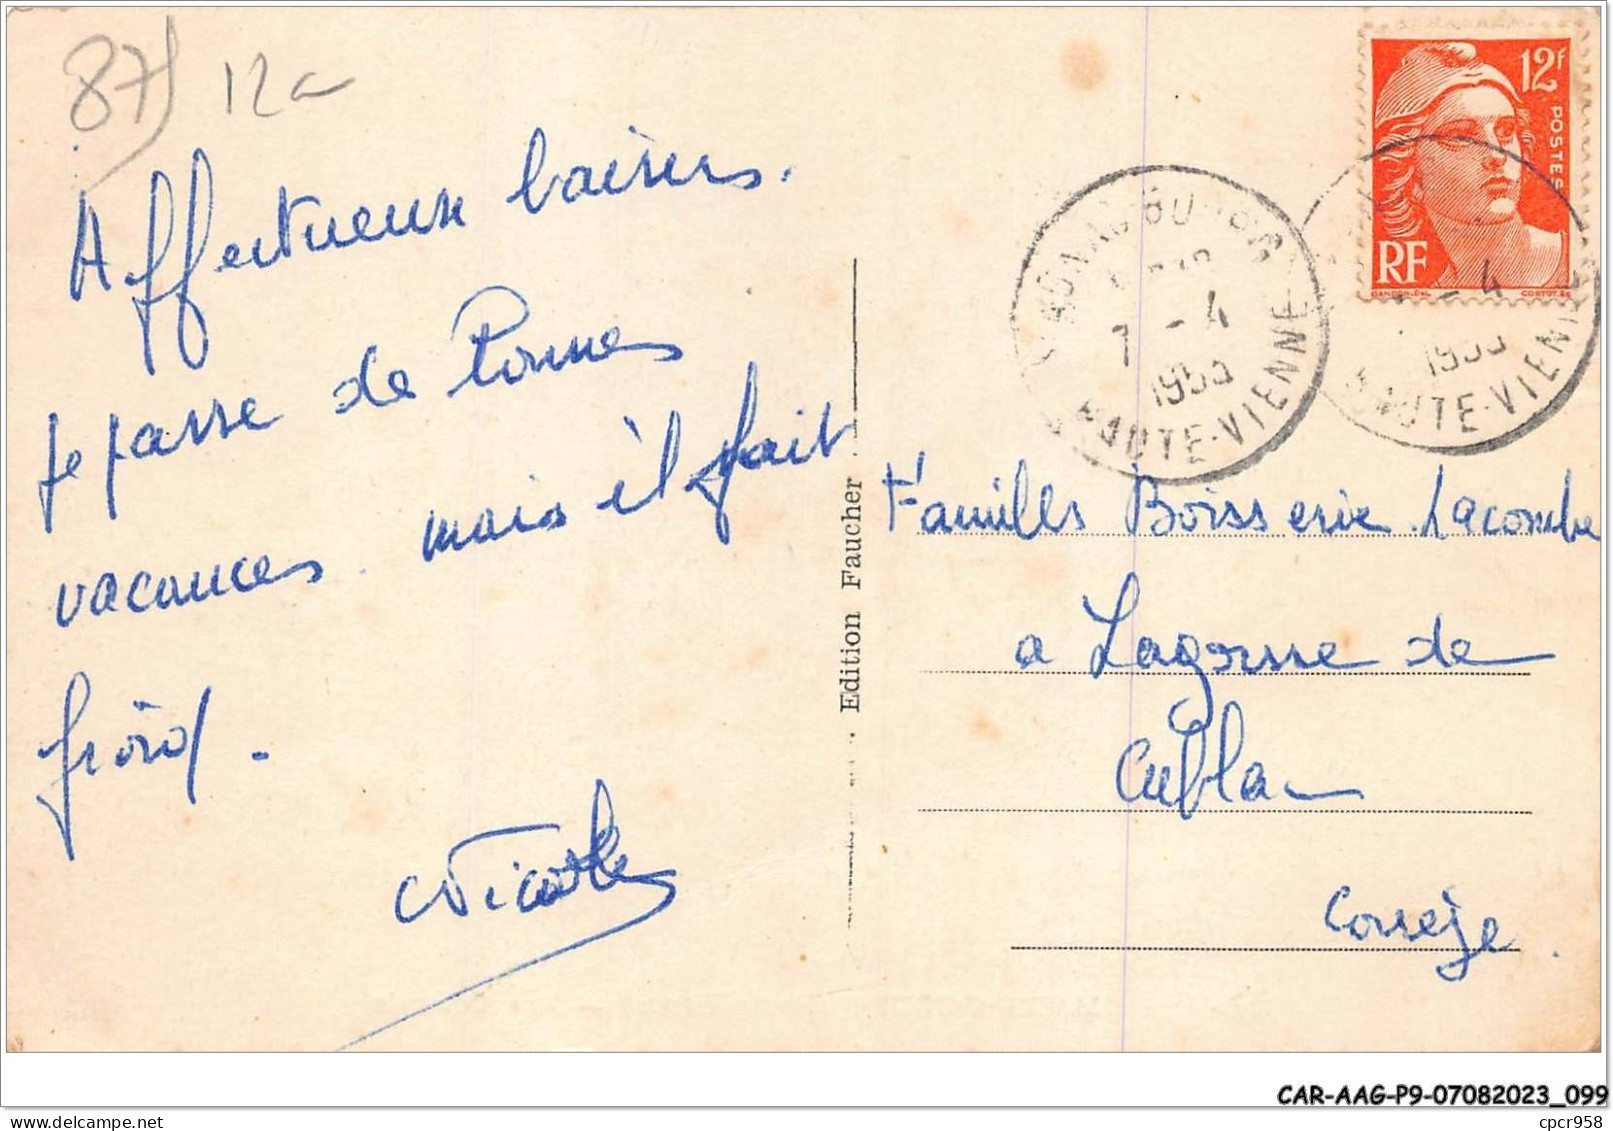 87 12a
Affectueux baisers.
Je passe de bonnes
vacances. mais il fait
froid.
Nicole
Edition Faucher
12F
POSTES
RF
GANDON-DEL.
CORTOT.SC
7 - 4
1953
HAUTE-VIENNE
- 4
1953
HAUTE-VIENNE
Familles Boisserie Lacombe
a Lagorsse de
Cublac
Corrèze.
CAR-AAG-P9-07082023_099
cpcr958